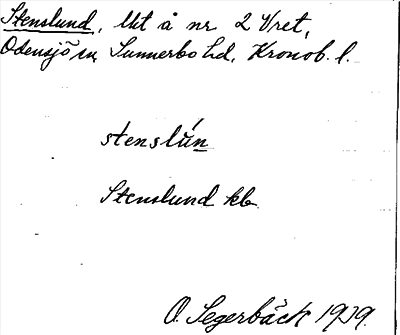 Stenslund, lht å nr 2 Vret,
Odensjö sn, Sunnerbo hd, Kronob. l.
stenslún
Stenslund kb
O. Segerbäck 1929.